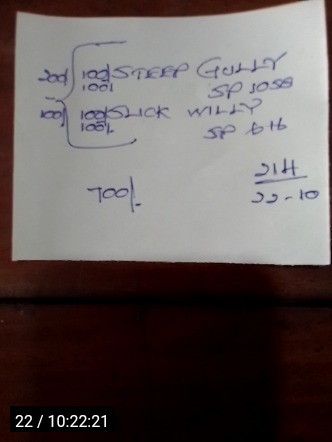 200/ 100/ STEEP GULLY
100/ SP
100/ 100/ SLICK WILLY
100/. SP
700/.
214
22-10
22 / 10:22:21